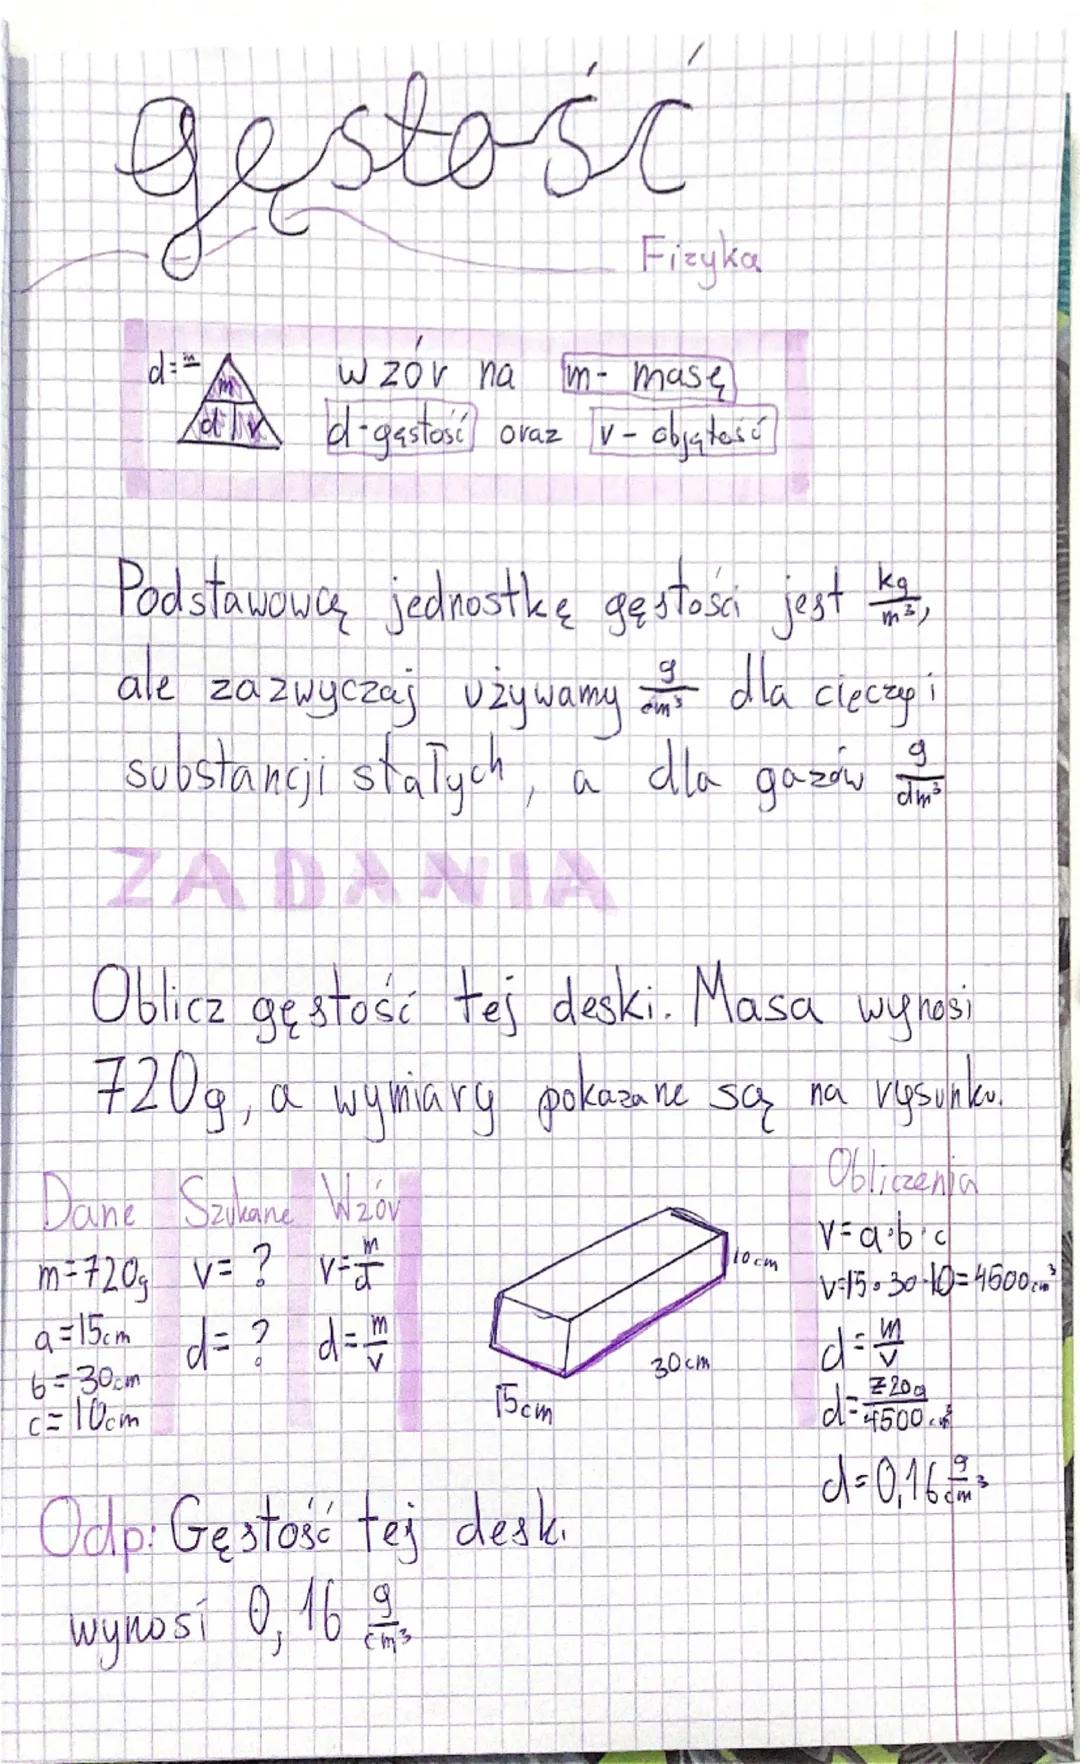 gęstość
Fizyka
d=m
m
d v
wzór na m- masę
d-gęstość oraz v- objętość
Podstawową jednostkę gęstości jest kg/m³,
ale zazwyczaj używamy g/cm³ dla cieczy i
substancji stałych, a dla gazów g/dm³
ZADANIA
Oblicz gęstość tej deski. Masa wynosi
720g, a wymiary pokazane są na rysunku.
Dane
m=720g
a=15cm
b=30cm
c=10cm
Szukane
v=?
d=?
Wzór
v=m/d
d=m/v
10cm
30cm
15cm
Obliczenia
v=a·b·c
v=15·30·10=4500cm³
d=m/v
d=720g/4500cm³
d=0,16 g/cm³
Odp: Gęstość tej deski
wynosi 0,16 g/cm³